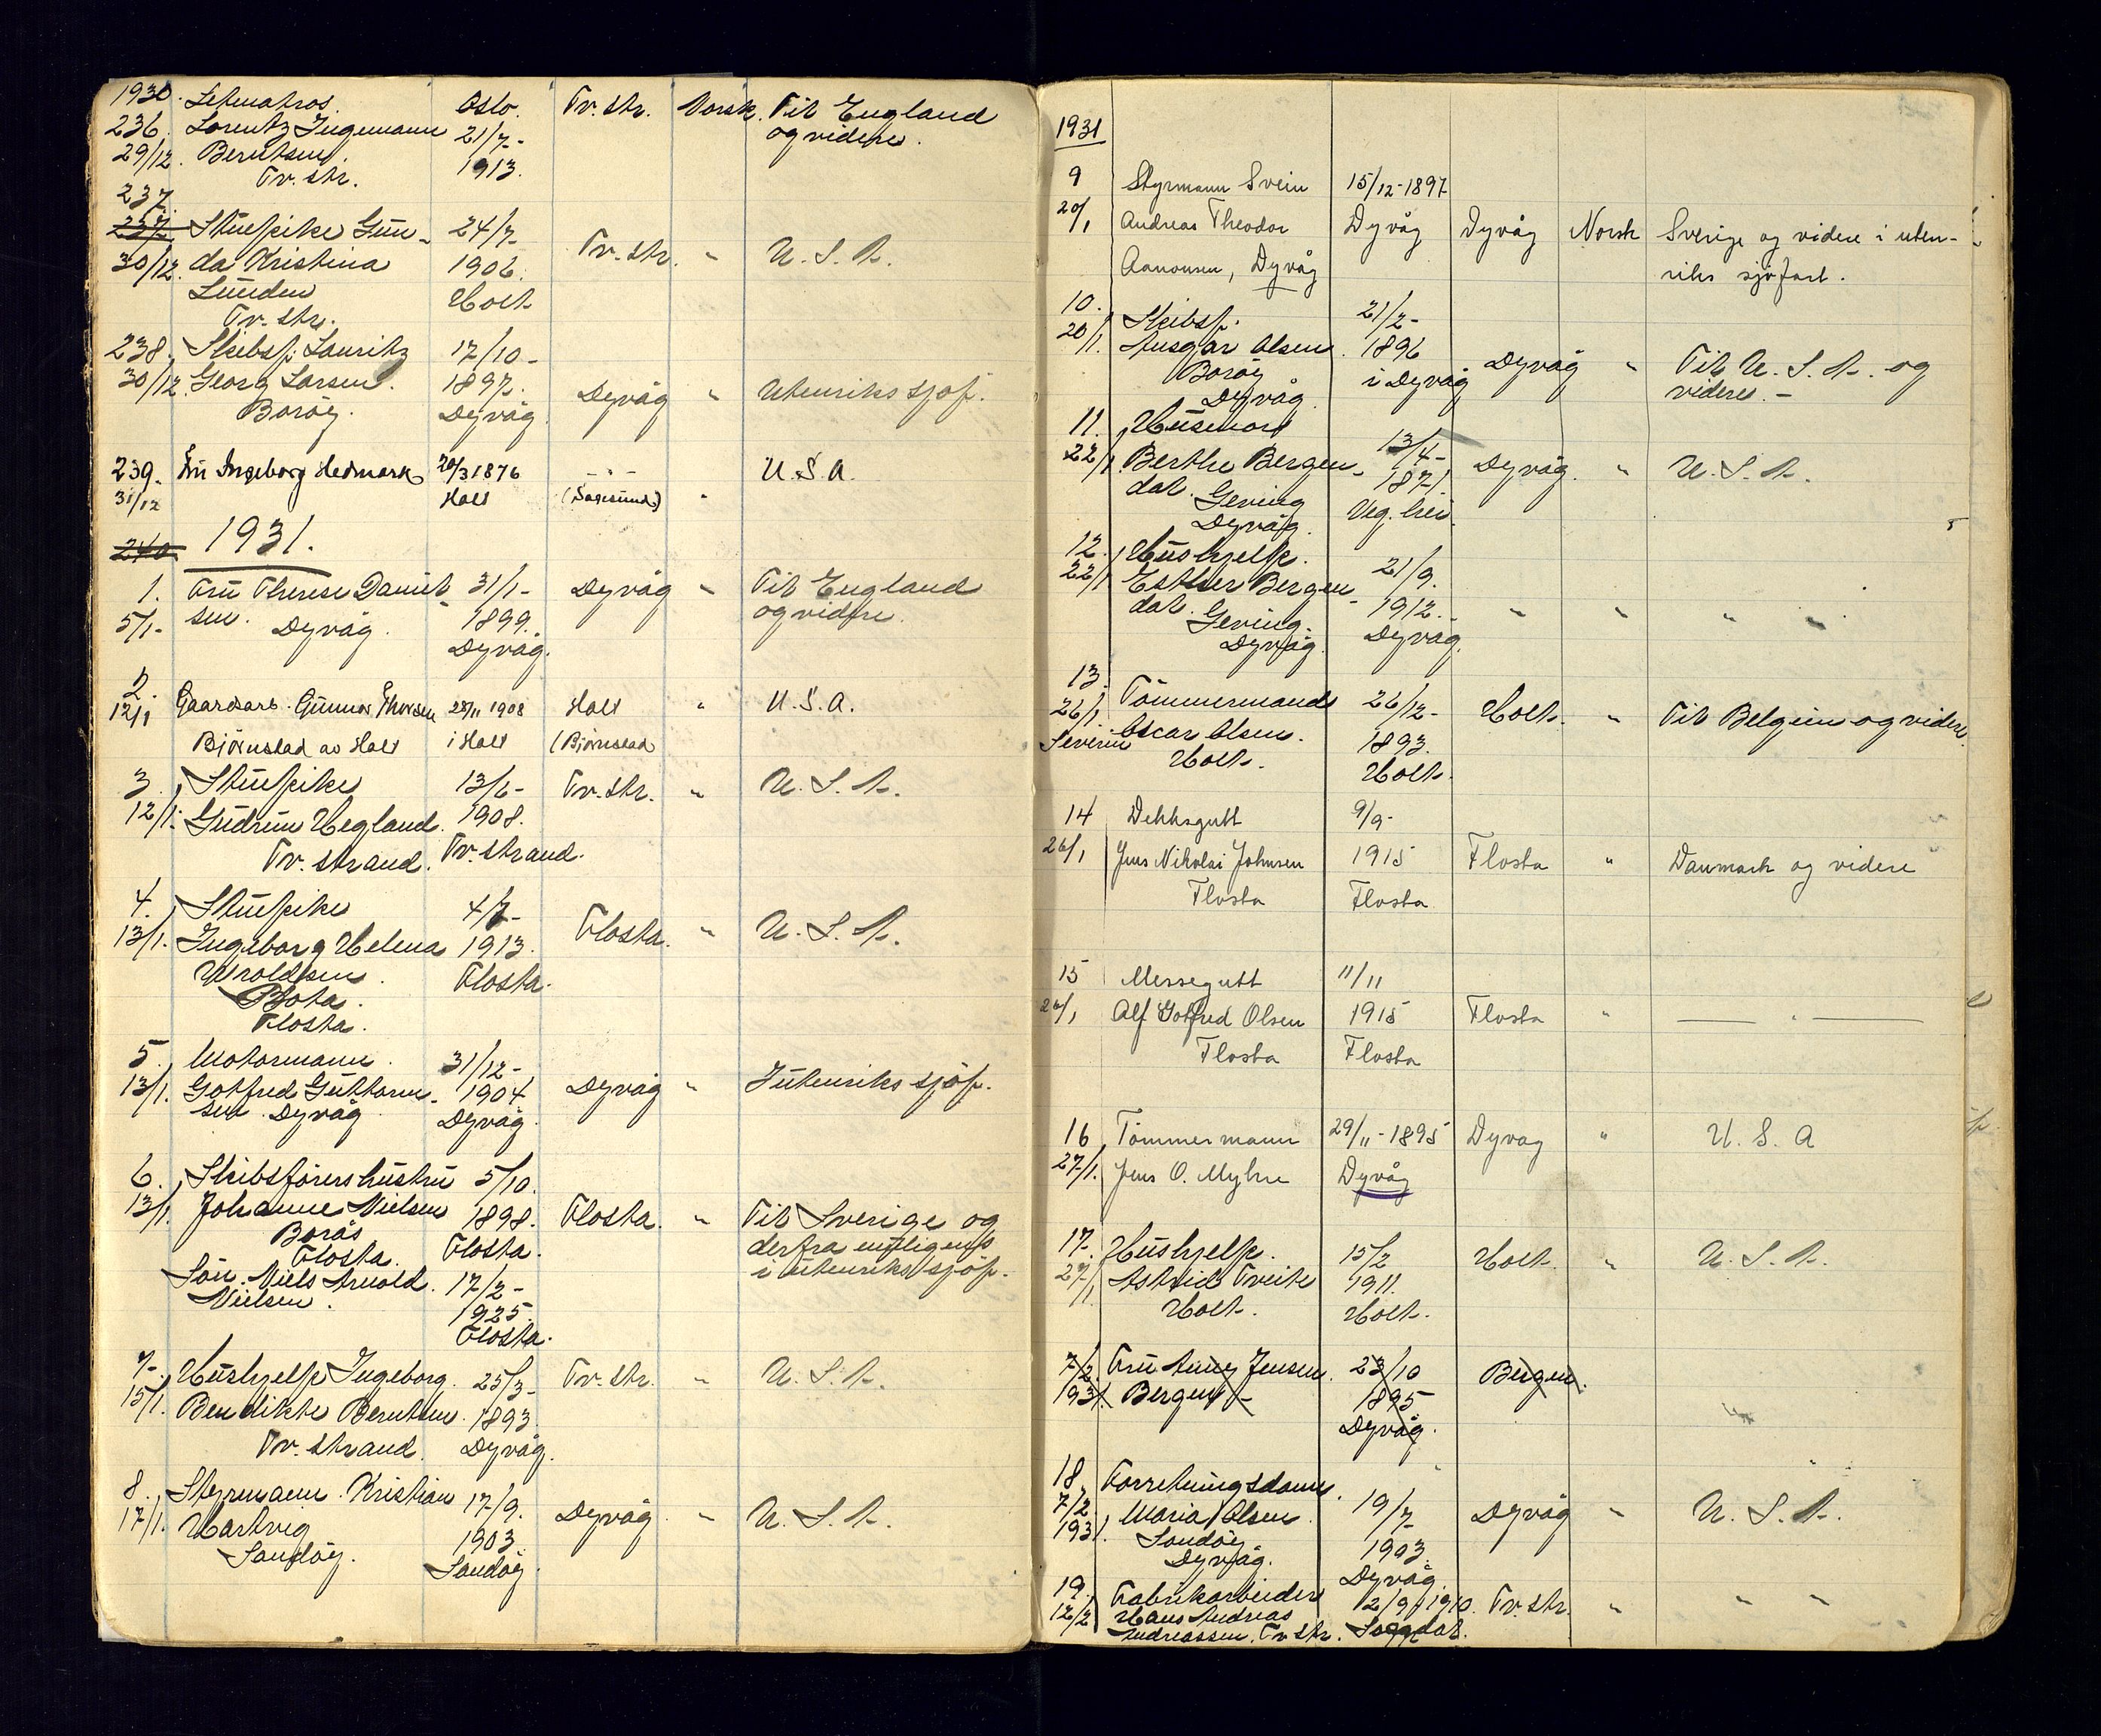 1930. Letmatros. Oslo. Tv. str. Norsk. Til England
236. Lorentz Ingemann 21/7- og videre.
29/12. Berntsen 1913.
Tv. str.
237.
237. Stuepike Gun- 24/7- Tv. str. " U. S. A.
30/12. da Kristina 1906.
Lunden Holt
Tv. str.
238. Skibsf. Lauritz 17/10-
30/12. Georg Larsen. 1897. Dyvåg " Utenriks sjøf.
Borøy. Dyvåg
239. Fru Ingeborg Hedmark 20/3 1876 -"- U. S. A.
31/12 Holt (Sagesund) "
240 1931.
1. Fru Therese Daniel- 31/1- Dyvåg " Til England
5/1- sen. Dyvåg. 1899. og videre.
Dyvåg.
2. Gaardsarb. Gunnar Thorsen 28/11 1908 Holt " U. S. A.
12/1 Bjørnstad av Holt i Holt (Bjørnstad
3. Stuepike 13/6- Tv. str. " U. S. A.
12/1. Gudrun Hegland. 1908.
Tv. strand. Tv. strand.
4. Stuepike 4/7- Flosta. " U. S. A.
13/1. Ingeborg Helena 1913.
Uroldsen Flosta.
Bota.
Flosta.
5. Motormann. 31/12-
13/1. Gotfred Guttorm- 1904 Dyvåg " I utenriks sjøf.
sen. Dyvåg Dyvåg.
6. Skibsførershustru 5/10.
13/1. Johanne Nielsen 1898. Flosta. " Til Sverige og
Borås Flosta. derfra muligens
Flosta. i utenriks sjøf.
Søn. Niels Arnold 17/2-
Nielsen. 1925.
Flosta.
7- Hushjelp Ingeborg. 25/3- Tv. str. " U. S. A.
15/1. Bendikte Berntsen. 1893.
Tv. strand. Dyvåg.
8. Styrmann. Kristian 17/9. Dyvåg. " U. S. A.
17/1. Hartvig 1903.
Sandøy. Sandøy.
1931
9 Styrmann Svein 15/12-1897
20/1 Andreas Theodor Dyvåg Dyvåg Norsk Sverige og videre i uten-
Aanonsen, Dyvåg riks sjøfart.
10. Skibsf. 21/2-
20/1. Ansgar Olsen. 1896 Dyvåg " Til U. S. A. og
Borøy i Dyvåg videre. -
Dyvåg
11. Husmor 13/4-
22/1. Berthe Bergen- 1871. Dyvåg. " U. S. A.
dal. Gjeving Veg. hei.
Dyvåg.
12. Hushjelp. 21/9.
22/1 Esther Bergen- 1912. " " " "
dal. Gjeving. Dyvåg.
Dyvåg.
13. Tømmermand 26/12- Holt. " Til Belgien og videre.
26/1. Oscar Olsen. 1893.
Severin Holt. Holt.
14 Dekksgutt 9/9-
26/1 Jens Nikolai Johnsen 1915 Flosta " Danmark og videre
Flosta Flosta
15 Messegutt 11/11
26/1 Alf Gotfred Olsen 1915 Flosta " — " —
Flosta Flosta
16 Tømmermann 29/11-1895 Dyvag " U. S. A
27/1. Jens O. Myhre Dyvåg
17. Hushjelp. 15/2 Holt. " U. S. A.
27/1. Astrid Tveite 1911.
Holt. Holt.
7/2. Fru Jensen. 23/10 Bergen.
1931. Bergen - 1895
Dyvåg.
18. Forretningsdame.
7/2. Maria Olsen. 19/7- Dyvåg " U. S. A.
1931. Sandøy 1903.
Dyvåg. Dyvåg.
19. Fabrikarbeider 12/9 1910. Tv. str. " " "
12/2 Hans Andreas
Andreassen. Tv str.